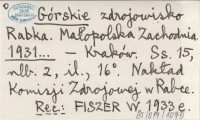 Górskie zdrojowisko
Rabka. Małopolska Zachodnia
1931... — Kraków. Ss. 15,
nlb. 2, il., 16°. Nakład
Komisji Zdrojowej w Rabce.
Rec: FISZER W. 1933 r.